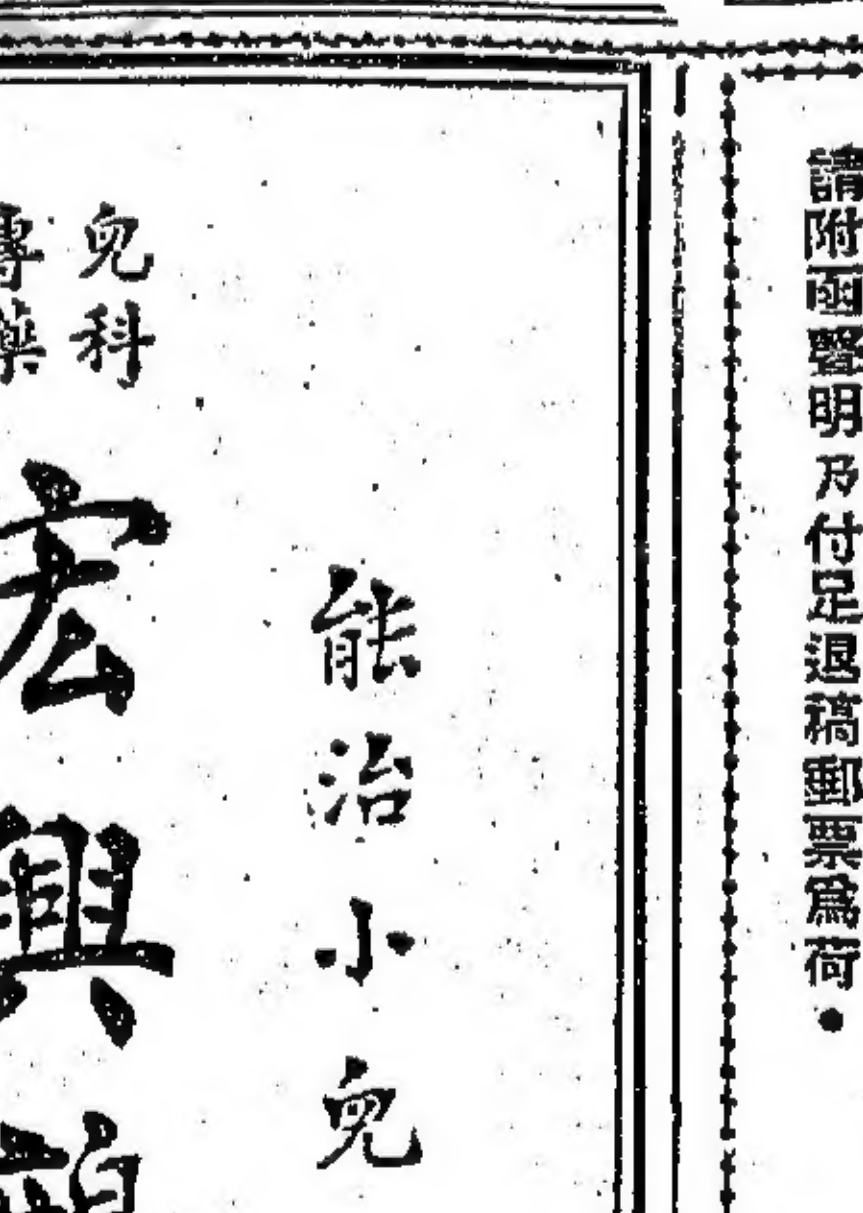 請附函聲明乃付足退稿郵票爲荷●
能治小兒
兒科
專藥
宏興